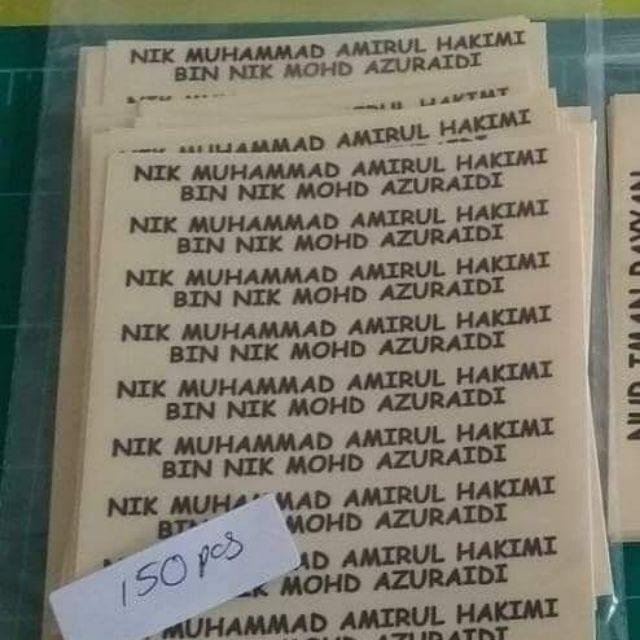 NIK MUHAMMAD AMIRUL HAKIMI
BIN NIK MOHD AZURAIDI
HAKIMI
NIK MUHAMMAD AMIRUL HAKIMI
NIK MUHAMMAD AMIRUL HAKIMI
BIN NIK MOHD AZURAIDI
NIK MUHAMMAD AMIRUL HAKIMI
BIN NIK MOHD AZURAIDI
NIK MUHAMMAD AMIRUL HAKIMI
BIN NIK MOHD AZURAIDI
NIK MUHAMMAD AMIRUL HAKIMI
BIN NIK MOHD AZURAIDI
NIK MUHAMMAD AMIRUL HAKIMI
BIN NIK MOHD AZURAIDI
NIK MUHAMMAD AMIRUL HAKIMI
BIN NIK MOHD AZURAIDI
NIK MUHAMMAD AMIRUL HAKIMI
MOHD AZURAIDI
AMIRUL HAKIMI
MOHD AZURAIDI
MUHAMMAD AMIRUL HAKIMI
150 pcs
NUR IMAN RAYYAN